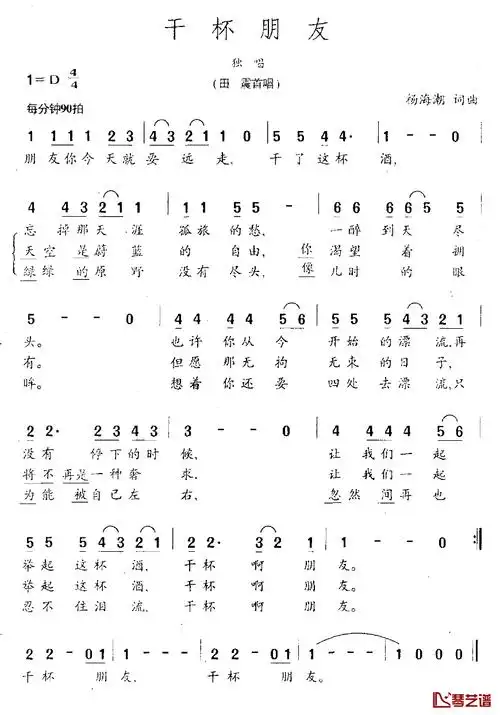 干杯朋友
独唱
(田 震首唱)
1=D 4/4
每分钟90拍
杨海潮 词曲
1 1 1 1 2 3 | 4 3 2 1 0 1 | 5 5 4 4· | 1 - - 0 |
朋友你今天就要远走,干了这杯酒,
4 4 3 2 1 1 | 1 1 1 5 5 | 6 6 6 6 5 | 6 6 5 5 |
忘掉那天涯孤旅的愁,一醉到天尽
天空是蔚蓝的自由,你渴望着拥
绿绿的原野没有尽头,像儿时的眼
5 - - 0 | 4 4 4 4 5 6 | 5 5 5 4 3 2 1 |
头。也许你从今开始的漂流,再
有。但愿那无拘无束的日子,
眸。想着你还要四处去漂流,只
2 2· 2 3 2 3 4 3 | 3 - - 0 | 4 4 4 4 5 6 |
没有停下的时候,让我们一起
将不再是一种奢求,让我们一起
为能被自己左右,忽然间再也
5 5 5 4 3 2 1 | 2 2· 3 2 2 1 | 1 - - 0 :‖
举起这杯酒,干杯啊朋友。
举起这杯酒,干杯啊朋友。
忍不住泪流,干杯啊朋友。
2 2 - 0 1 | 1 - - 0 | 2 2 - 0 1 | 1 - - - | 1 0 0 0 ‖
干杯朋友,干杯朋友。
琴艺谱